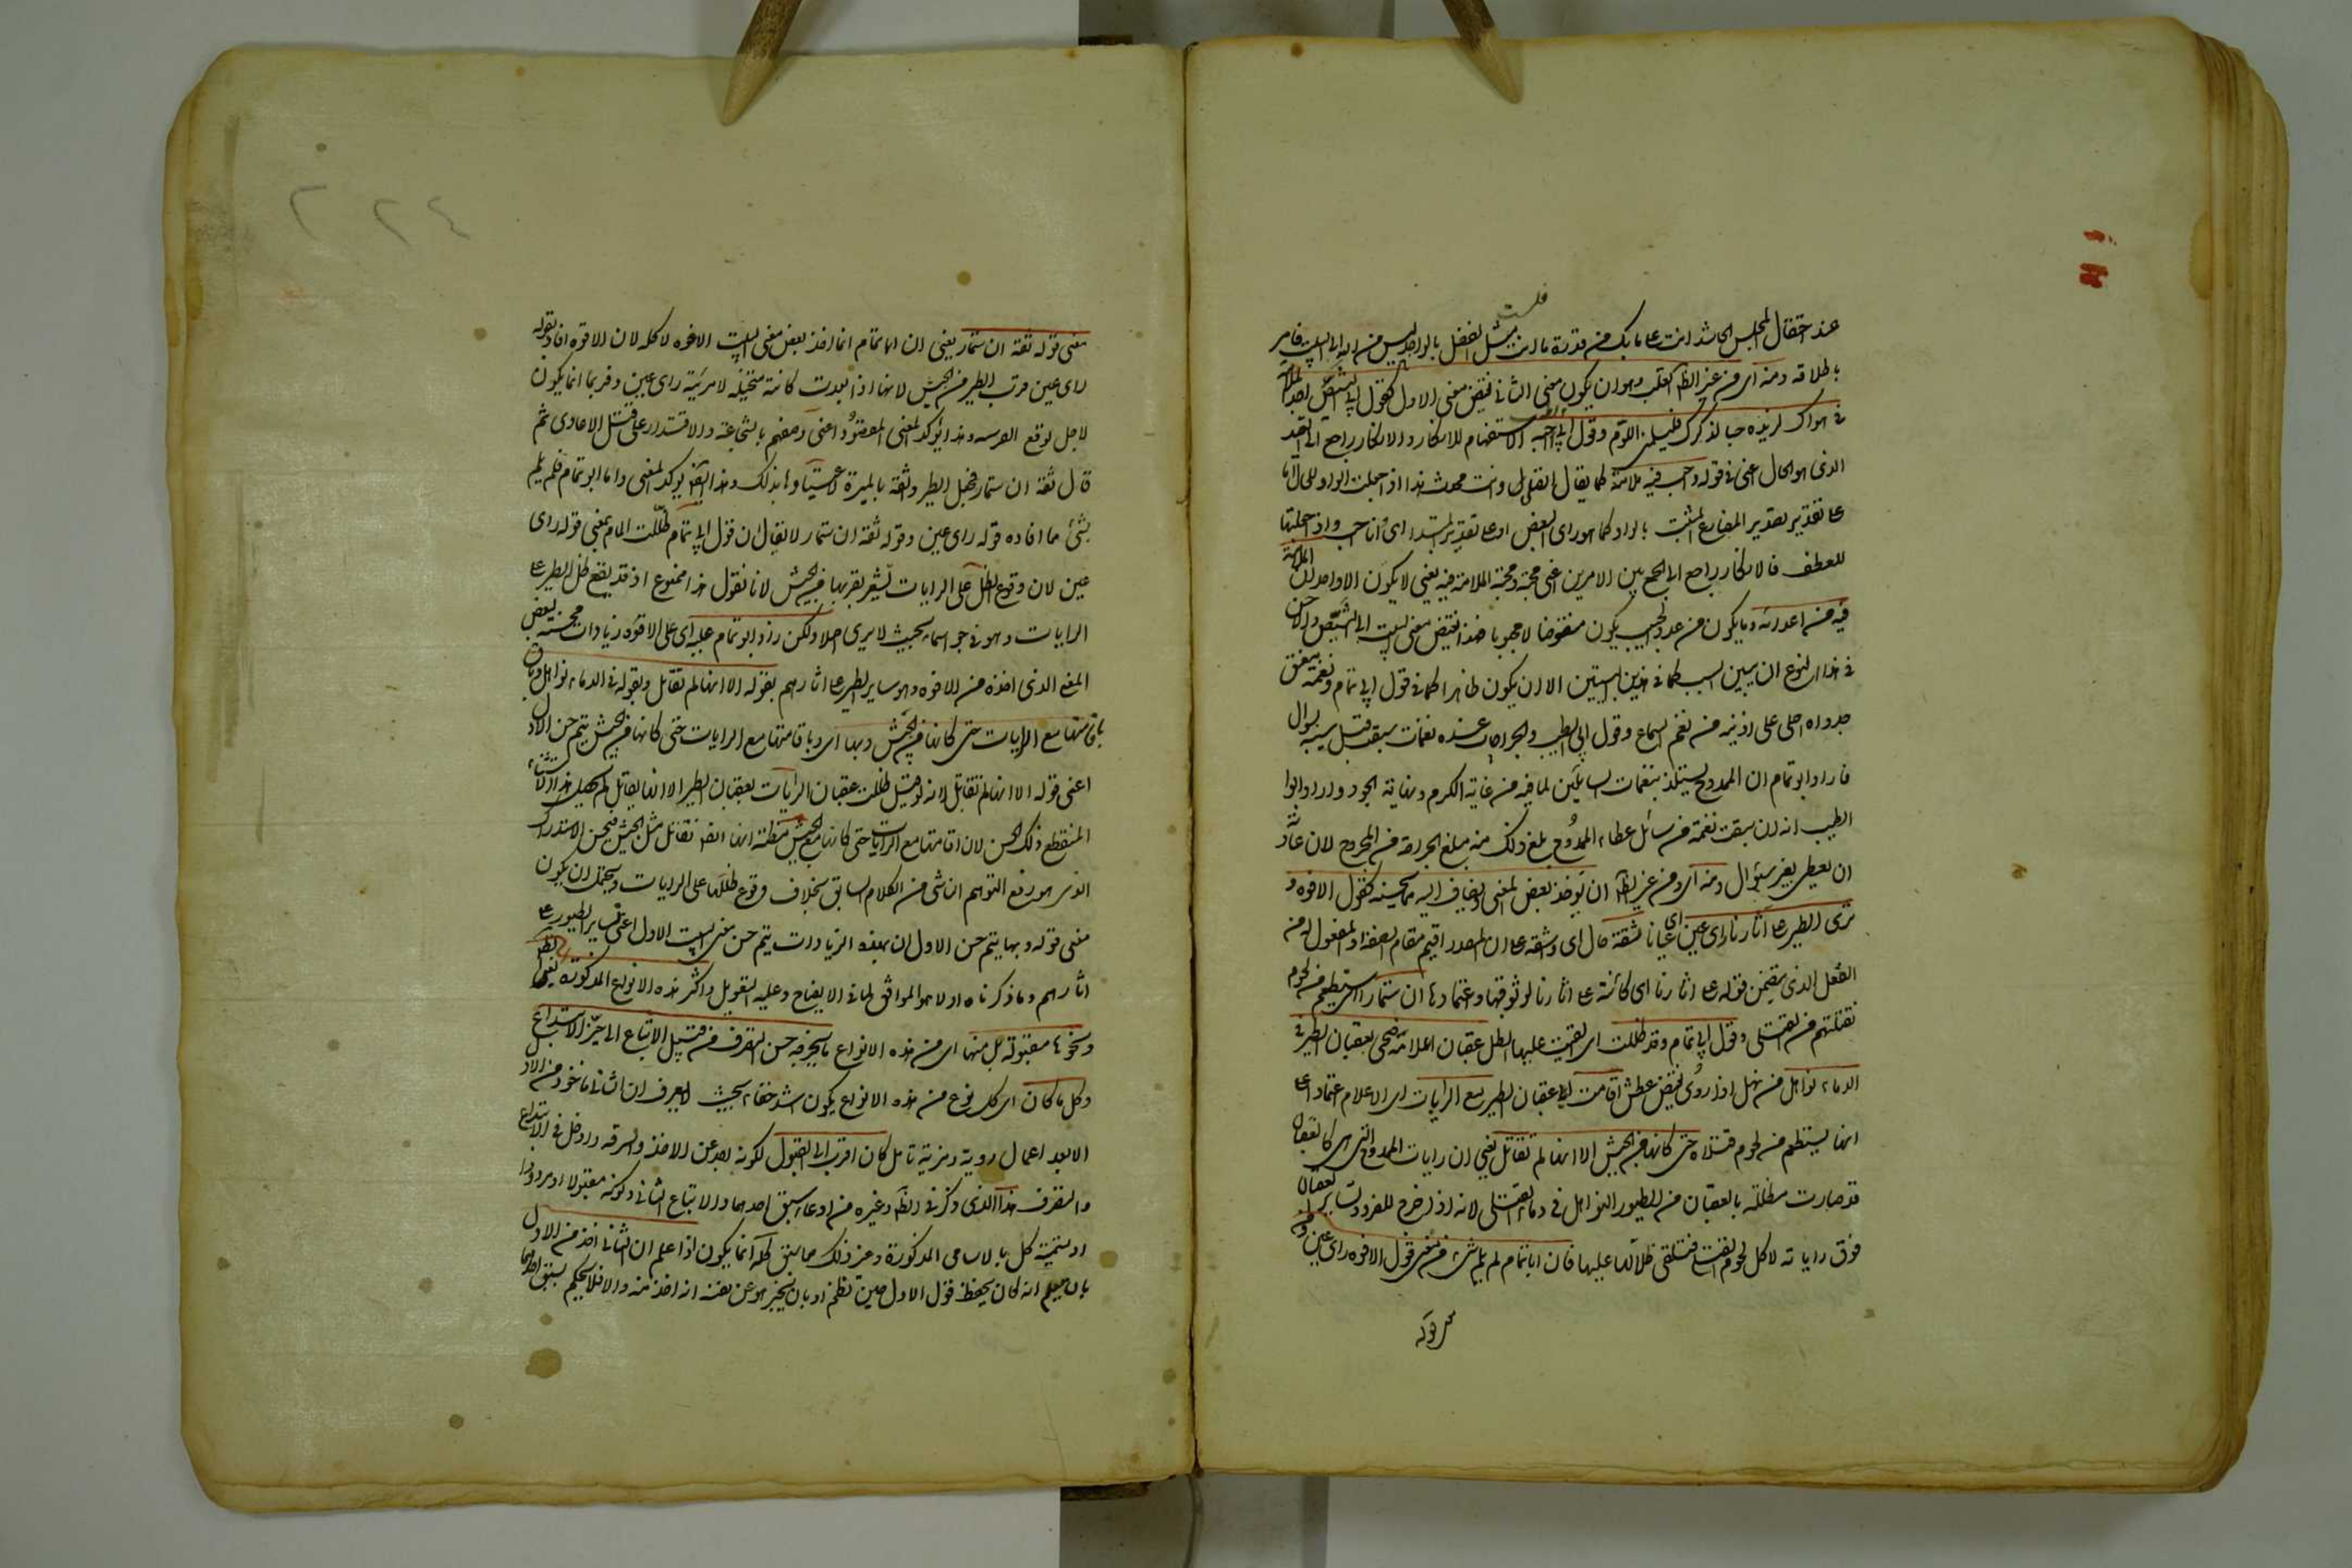 عند احتفال المجلس الحاشد انت على ما بك من قدرة ما انت بمثل الفضل بالواجد ليس من اله الى البيت فامر
باطلاقه ومنه اى من غير الظاهر القلب وهو ان يكون معنى الثانى نقيض معنى الاول كقول ابى الشيص اجد الملامة
فى هواك لذيذة حبا لذكرك فليلمنى اللوم وقول ابى الطيب أأحبه الاستفهام للانكار والانكار راجع الى القيد
الذى هو الحال اعنى فى قوله واحب فيه ملامة كما يقال اتصلى وانت محدث هذا اذا جعلت الواو للحال اما
على تقدير تصدير المضارع المثبت بالواو كما هو راى البعض او على تقدير المبتدا اى وانا احب واذا جعلتها
للعطف فالانكار راجع الى الجمع بين الامرين اعنى محبته ومحبة الملامة فيه يعنى لا يكون الا واحد ان الملامة
فيه من اعدائه وما يكون من عدو الحبيب يكون مبغوضا لا محبوبا هذا نقيض معنى البيت ابى الشيص والاحسن
فى هذا النوع ان يبين السبب كما فى هذين البيتين الا ان يكون ظاهرا كما فى قول ابى تمام ونغمة معتف
جدواه احلى على اذنيه من نغم السماع وقول ابى الطيب والجراحات عنده نغمات سبقت قبل سيبه بسؤال
فاراد ابو تمام ان الممدوح يستلذ بنغمات السائلين لما فيه من غاية الكرم ونهاية الجود واراد ابو
الطيب انه ان سبقت نغمة من سائل عطاء الممدوح بلغ ذلك منه مبلغ الجراحة من المجروح لان عادته
ان يعطى بغير سؤال ومنه اى ومن غير الظاهر ان يؤخذ بعض المعنى ويضاف اليه ما يحسنه كقول الافوه و
ترى الطير على آثارنا راى عين اى عيانا ثقة حال اى واثقة على ان المصدر اقيم مقام الصفة او المفعول له من
الفعل الذى يتضمن قوله على اثارنا اى كائنة على اثارنا لوثوقها واعتمادها ان ستمار اى ستطعم من لحوم
نقتلهم من القتلى وقول ابى تمام وقد ظللت اى القيت عليها الظل عقبان اعلامه ضحى بعقبان الطير فى
الدماء نواهل من نهل اذا روى نقيض عطش اقامت اى عقبان الطير مع الرايات اى الاعلام اعتمادا على
انها ستطعم من لحوم قتلاه حتى كانها من الجيش الا انها لم تقاتل يعنى ان رايات الممدوح التى هى كالعقبان
قد صارت مظللة بالعقبان من الطيور النواهل فى دماء القتلى لانه اذا خرج للغزو تساير العقبان
فوق راياته لاكل لحوم القتلى فتلقى ظلالها عليها فان ابا تمام لم يلم بشئ من معنى قول الافوه راى عين و
معنى قوله
٢٢٤
معنى قوله ثقة ان ستمار يعنى ان ابا تمام انما اخذ بعض معنى البيت الافوه لا كله لان الافوه افاد بقوله
راى عين قرب الطير من الجيش لانها اذا بعدت كانت متخيلة لا مرئية راى عين وقربها انما يكون
لاجل توقع الفريسة وهذا يؤكد المعنى المقصود اعنى وصفهم بالشجاعة والاقتدار على قتل الاعادى ثم
قال ثقة ان ستمار فجعل الطير واثقة بالميرة لاعتيادها بذلك وهذا ايضا يؤكد المعنى واما ابو تمام فلم يلم
بشئ مما افاده قوله راى عين وقوله ثقة ان ستمار لا يقال ان قول ابى تمام ظللت المام بمعنى قوله راى
عين لان وقوع الظل على الرايات يشعر بقربها من الجيش لانا نقول هذا ممنوع اذ قد يقع ظل الطير على
الرايات وهو فى جو السماء بحيث لا يرى اصلا ولكن زاد ابو تمام عليه اى على الافوه زيادات محسنة لبعض
المعنى الذى اخذه من الافوه وهو تساير الطير على اثارهم بقوله الا انها لم تقاتل وبقوله فى الدماء نواهل وبا
قامتها مع الرايات حتى كانها من الجيش وبها اى وباقامتها مع الرايات حتى كانها من الجيش يتم حسن الاول
اعنى قوله الا انها لم تقاتل لانه لو قيل ظللت عقبان الرايات بعقبان الطير الا انها لم تقاتل لم يحسن هذا الاستثناء
المنقطع ذلك الحسن لان اقامتها مع الرايات حتى كانها مع الجيش مظنة انها ايضا تقاتل مثل الجيش فيحسن الاستدراك
الذى هو رفع التوهم الناشى من الكلام السابق بخلاف وقوع ظلها على الرايات ويحتمل ان يكون
معنى قوله وبها يتم حسن الاول ان بهذه الزيادات يتم حسن معنى البيت الاول اعنى تساير الطيور على
اثارهم وما ذكرناه اولا هو الموافق لما فى الايضاح وعليه التعويل واكثر هذه الانواع المذكورة لغير الظاهر
ونحوها مقبولة بل منها اى من هذه الانواع ما يخرجه حسن التصرف من قبيل الاتباع الى حيز الابتداع
وكل ما كان اى كل نوع من هذه الانواع يكون اشد خفاء بحيث لا يعرف ان الثانى ماخوذ من الاول
الا بعد اعمال روية ومزية تامل كان اقرب الى القبول لكونه ابعد عن الاخذ والسرقة وادخل فى الابتداع
والتصرف هذا الذى ذكر فى الظاهر وغيره من ادعاء سبق احدهما والاتباع الثانى وكونه مقبولا او مردودا
او تسمية كل بالاسامى المذكورة وغير ذلك مما سبق كله انما يكون اذا علم ان الثانى اخذ من الاول
بان يعلم انه كان يحفظ قول الاول حين نظم او بان يخبر هو عن نفسه انه اخذ منه والا فلا يحكم بسبق احدهما